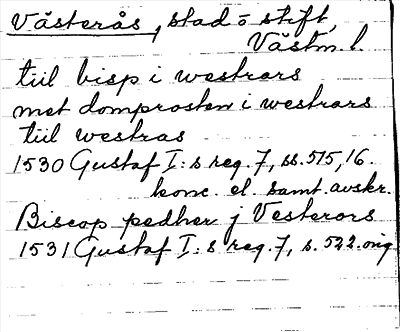 Västerås, stad o stift,
Västm. l.
till bisp i westrars
met domprosten i westrars
till westras
1530 Gustaf I:s reg. 7, ss. 515, 16.
konc. el. samt. avskr.
Biscop pedher j Vesterors
1531 Gustaf I:s reg. 7, s. 522. orig